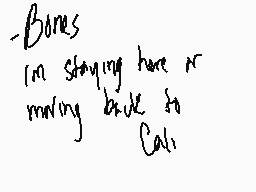 -Bones
im staying here or
moving back to
Cali